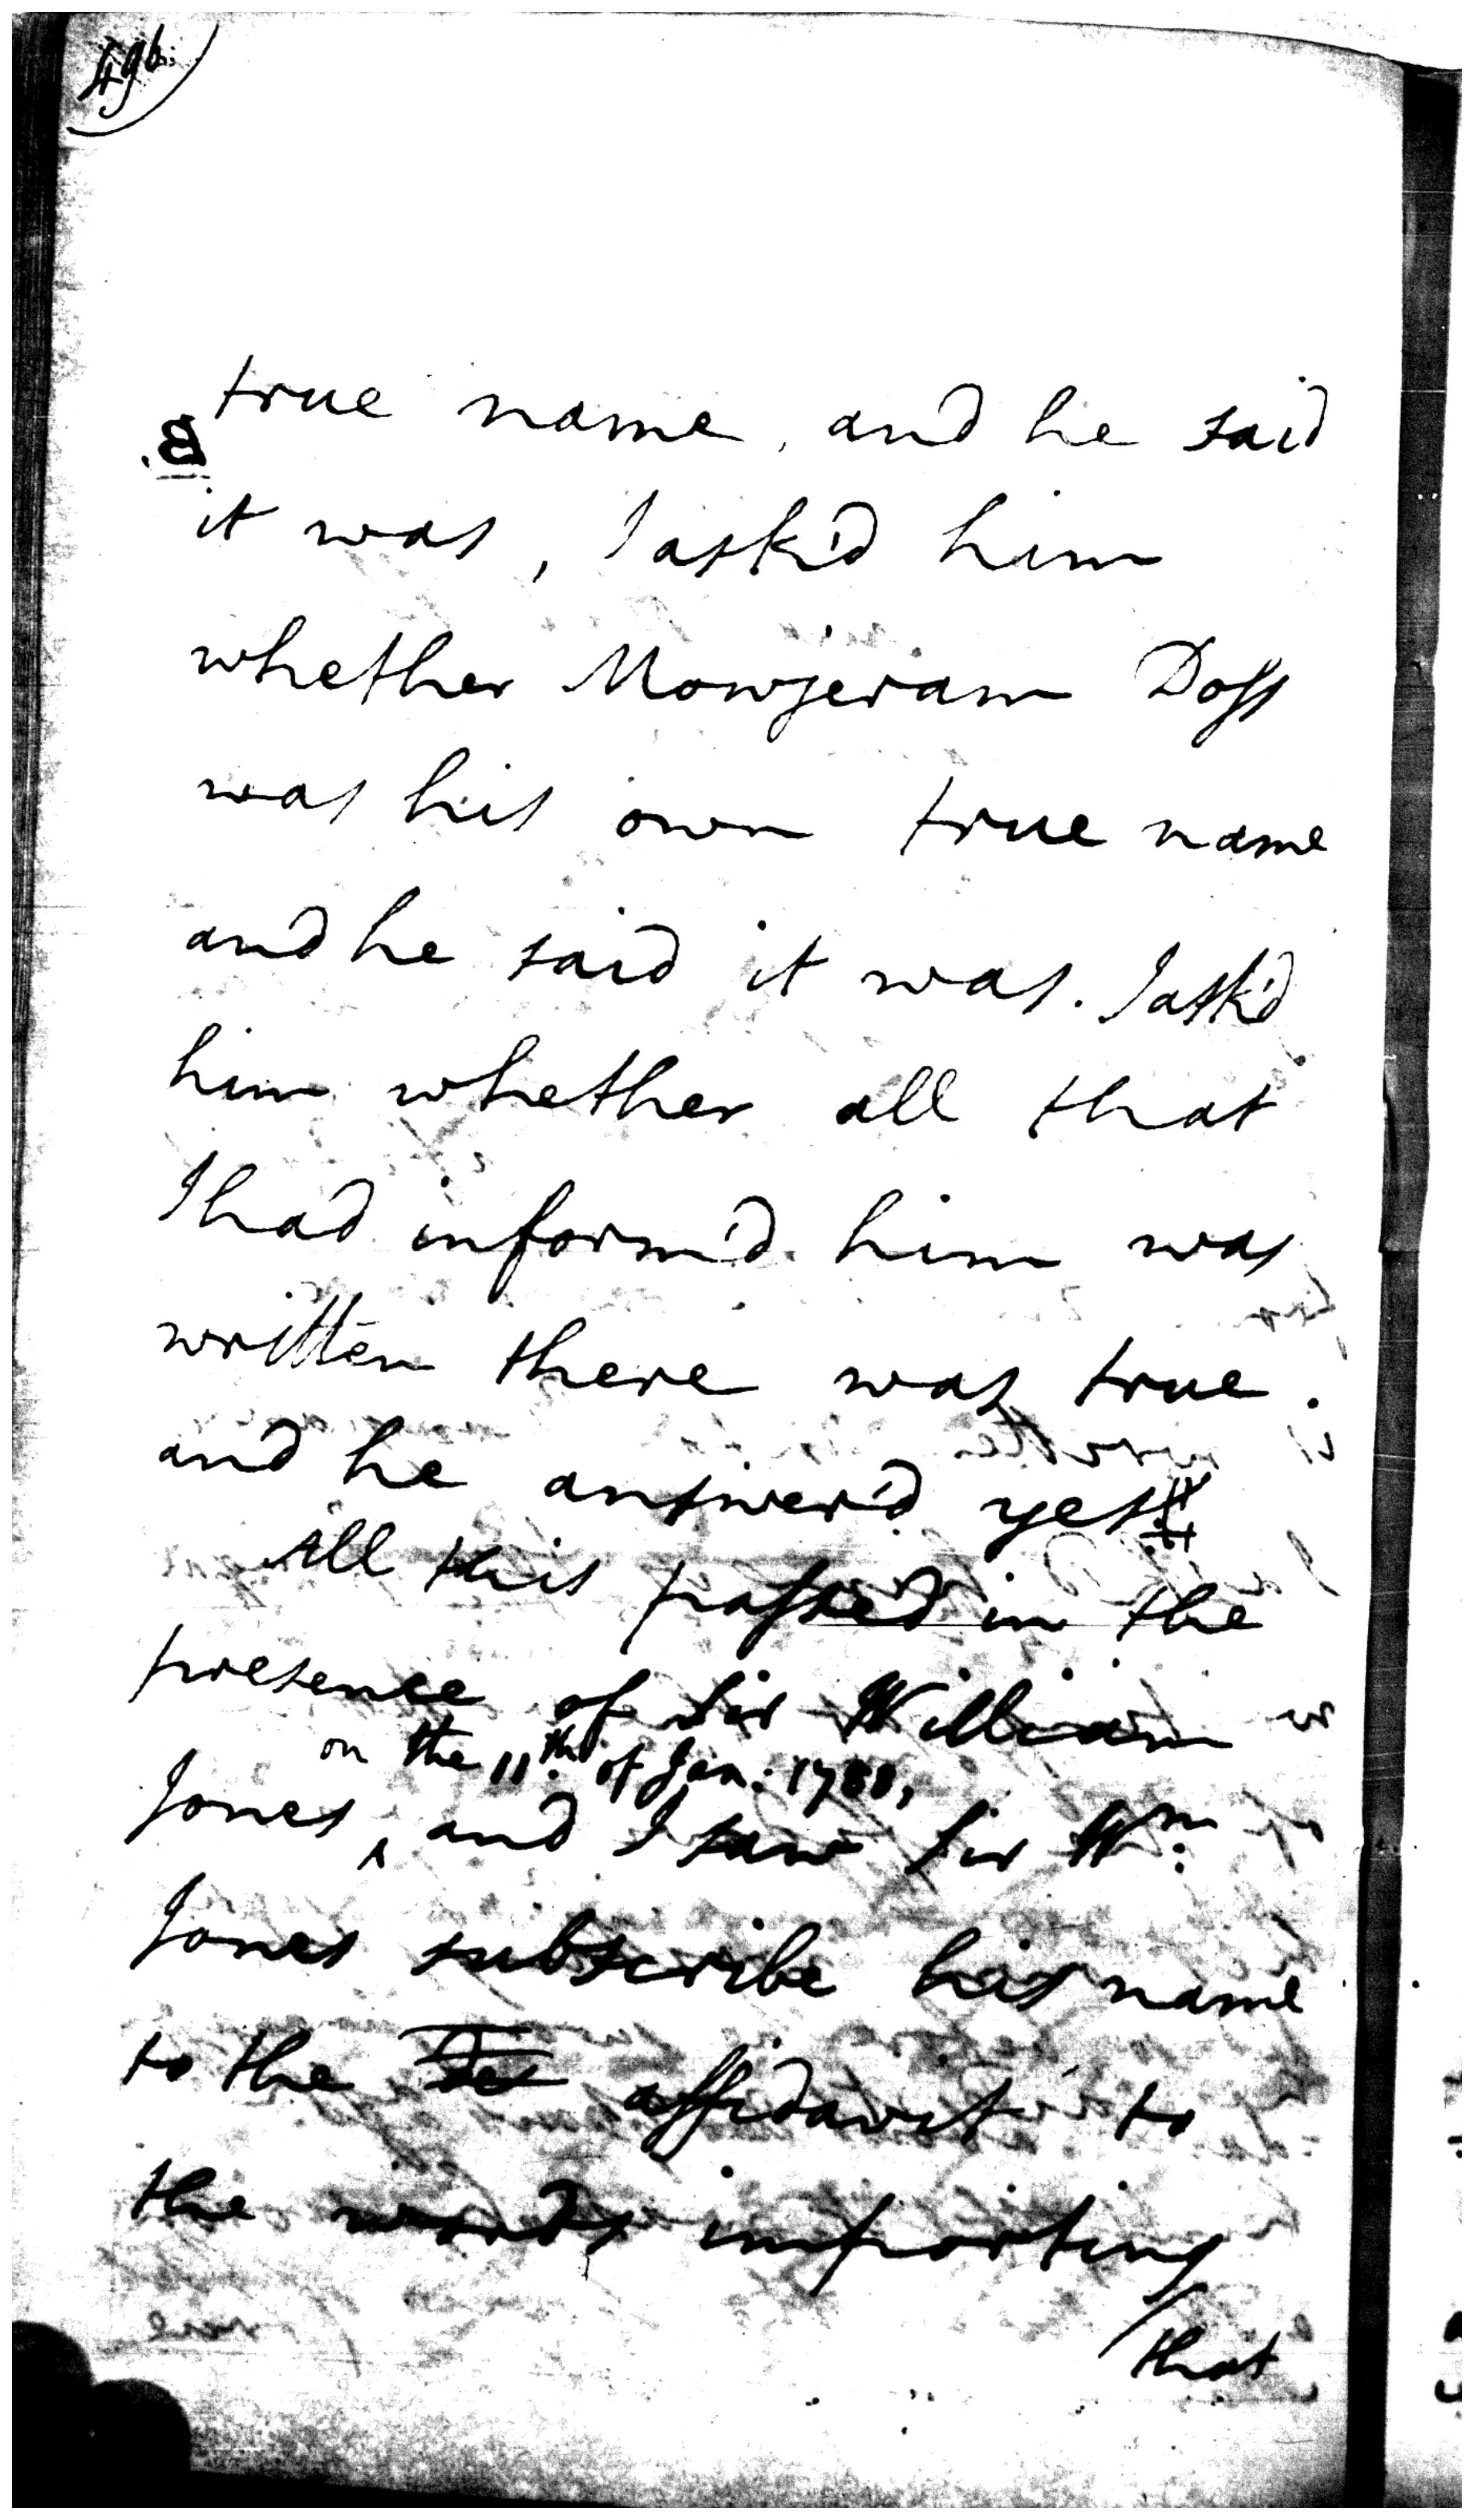 49b.
true name, and he said
B.
it was, I ask'd him
whether Mowjeram Doss
was his own true name
and he said it was. I ask'd
him whether all that
I had inform'd him was
written there was true.
and he answer'd yes
All this passed in the
presence of Sir William
on the 11th. of Jan: 1788,
Jones, and I saw Sir Wm:
Jones subscribe his name
to the affidavit to
the words importing
that